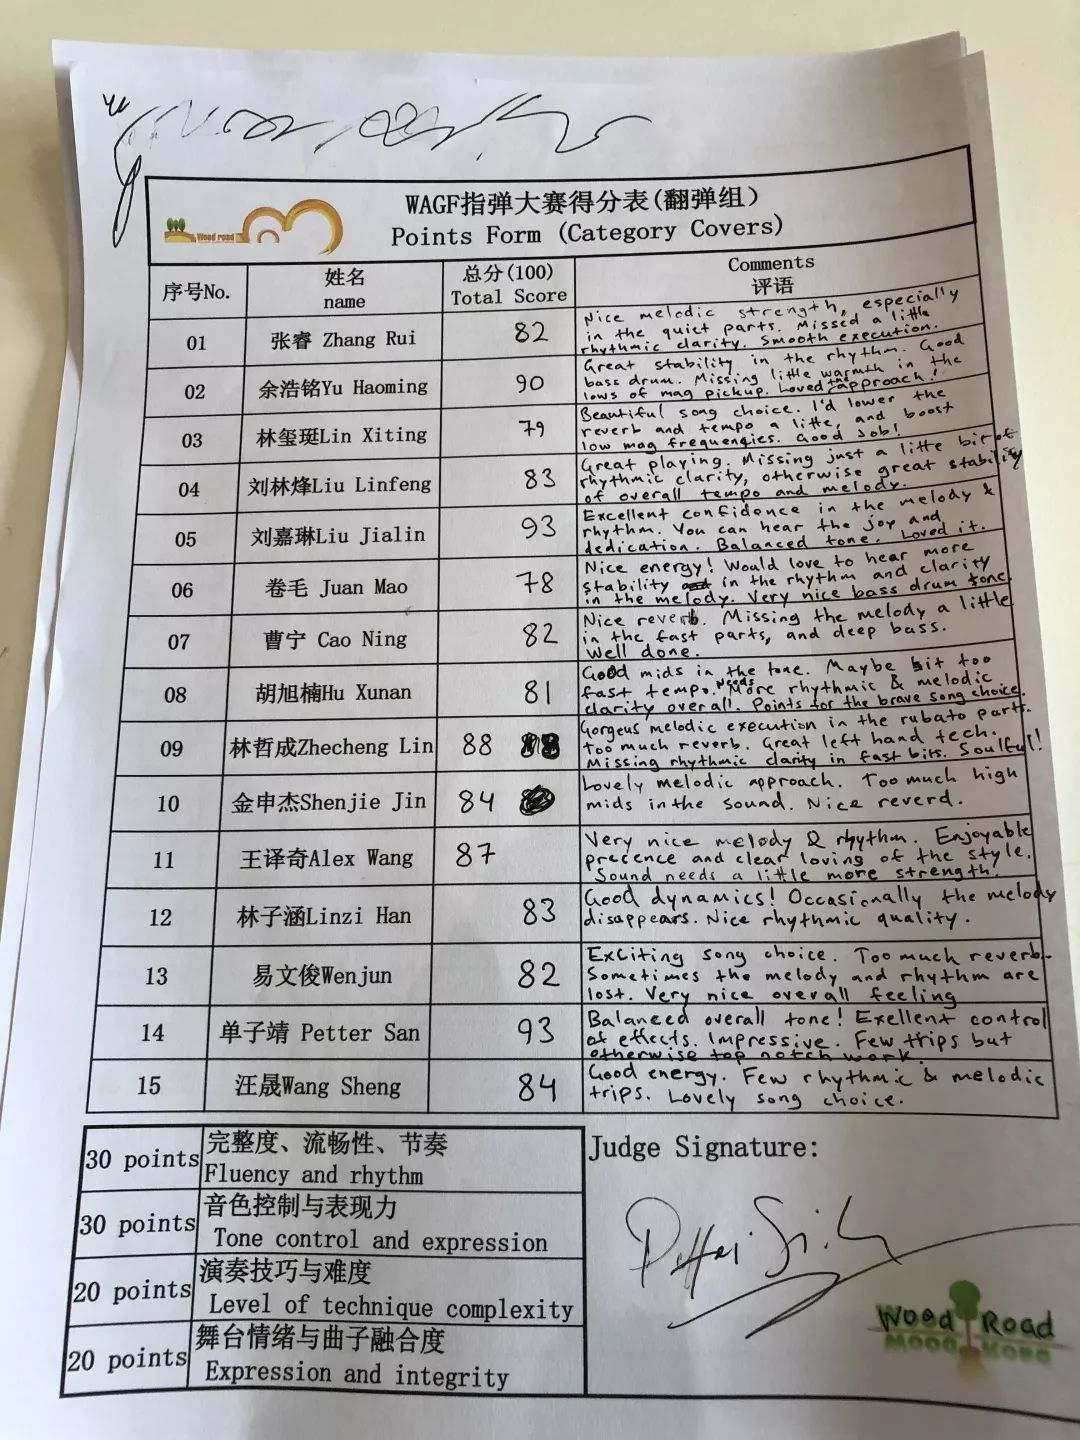 Wood road
WAGF指弹大赛得分表(翻弹组)
Points Form (Category Covers)
序号No.
姓名
name
总分(100)
Total Score
Comments
评语
01
张睿 Zhang Rui
82
Nice melodic strength, especially
in the quiet parts. Missed a little
rhythmic clarity. Smooth execution.
02
余浩铭Yu Haoming
90
Great stability in the rhythm. Good
bass drum. Missing little warmth in the
lows of mag pickup. Loved the approach!
03
林玺珽Lin Xiting
79
Beautiful song choice. I'd lower the
reverb and tempo a litte, and boost
low mag frequencies. Good Job!
04
刘林烽Liu Linfeng
83
Great playing. Missing just a litte bit of
rhythmic clarity, otherwise great stability
of overall tempo and melody.
05
刘嘉琳Liu Jialin
93
Excellent confidence in the melody &
rhythm. You can hear the joy and
dedication. Balanced tone. Loved it.
06
卷毛 Juan Mao
78
Nice energy! Would love to hear more
stability in the rhythm and clarity
in the melody. Very nice bass drum tone.
07
曹宁 Cao Ning
82
Nice reverb. Missing the melody a little
in the fast parts, and deep bass.
Well done.
08
胡旭楠Hu Xunan
81
Good mids in the tone. Maybe bit too
fast tempo. Needs More rhythmic & melodic
clarity overall. Points for the brave song choice.
09
林哲成Zhecheng Lin
88
Gorgeus melodic execution in the rubato parts.
Too much reverb. Great left hand tech.
Missing rhythmic clarity in fast bits. Soulful!
10
金申杰Shenjie Jin
84
Lovely melodic approach. Too much high
mids in the sound. Nice reverd.
11
王译奇Alex Wang
87
Very nice melody & rhythm. Enjoyable
precence and clear loving of the style.
Sound needs a little more strength!
12
林子涵Linzi Han
83
Good dynamics! Occasionally the melody
disappears. Nice rhythmic quality.
13
易文俊Wenjun
82
Exciting song choice. Too much reverb.
Sometimes the melody and rhythm are
lost. Very nice overall feeling
14
单子靖 Petter San
93
Balanced overall tone! Exellent control
of effects. Impressive. Few trips but
otherwise top notch work.
15
汪晟Wang Sheng
84
Good energy. Few rhythmic & melodic
trips. Lovely song choice.
30 points
完整度、流畅性、节奏
Fluency and rhythm
30 points
音色控制与表现力
Tone control and expression
20 points
演奏技巧与难度
Level of technique complexity
20 points
舞台情绪与曲子融合度
Expression and integrity
Judge Signature:
Wood Road